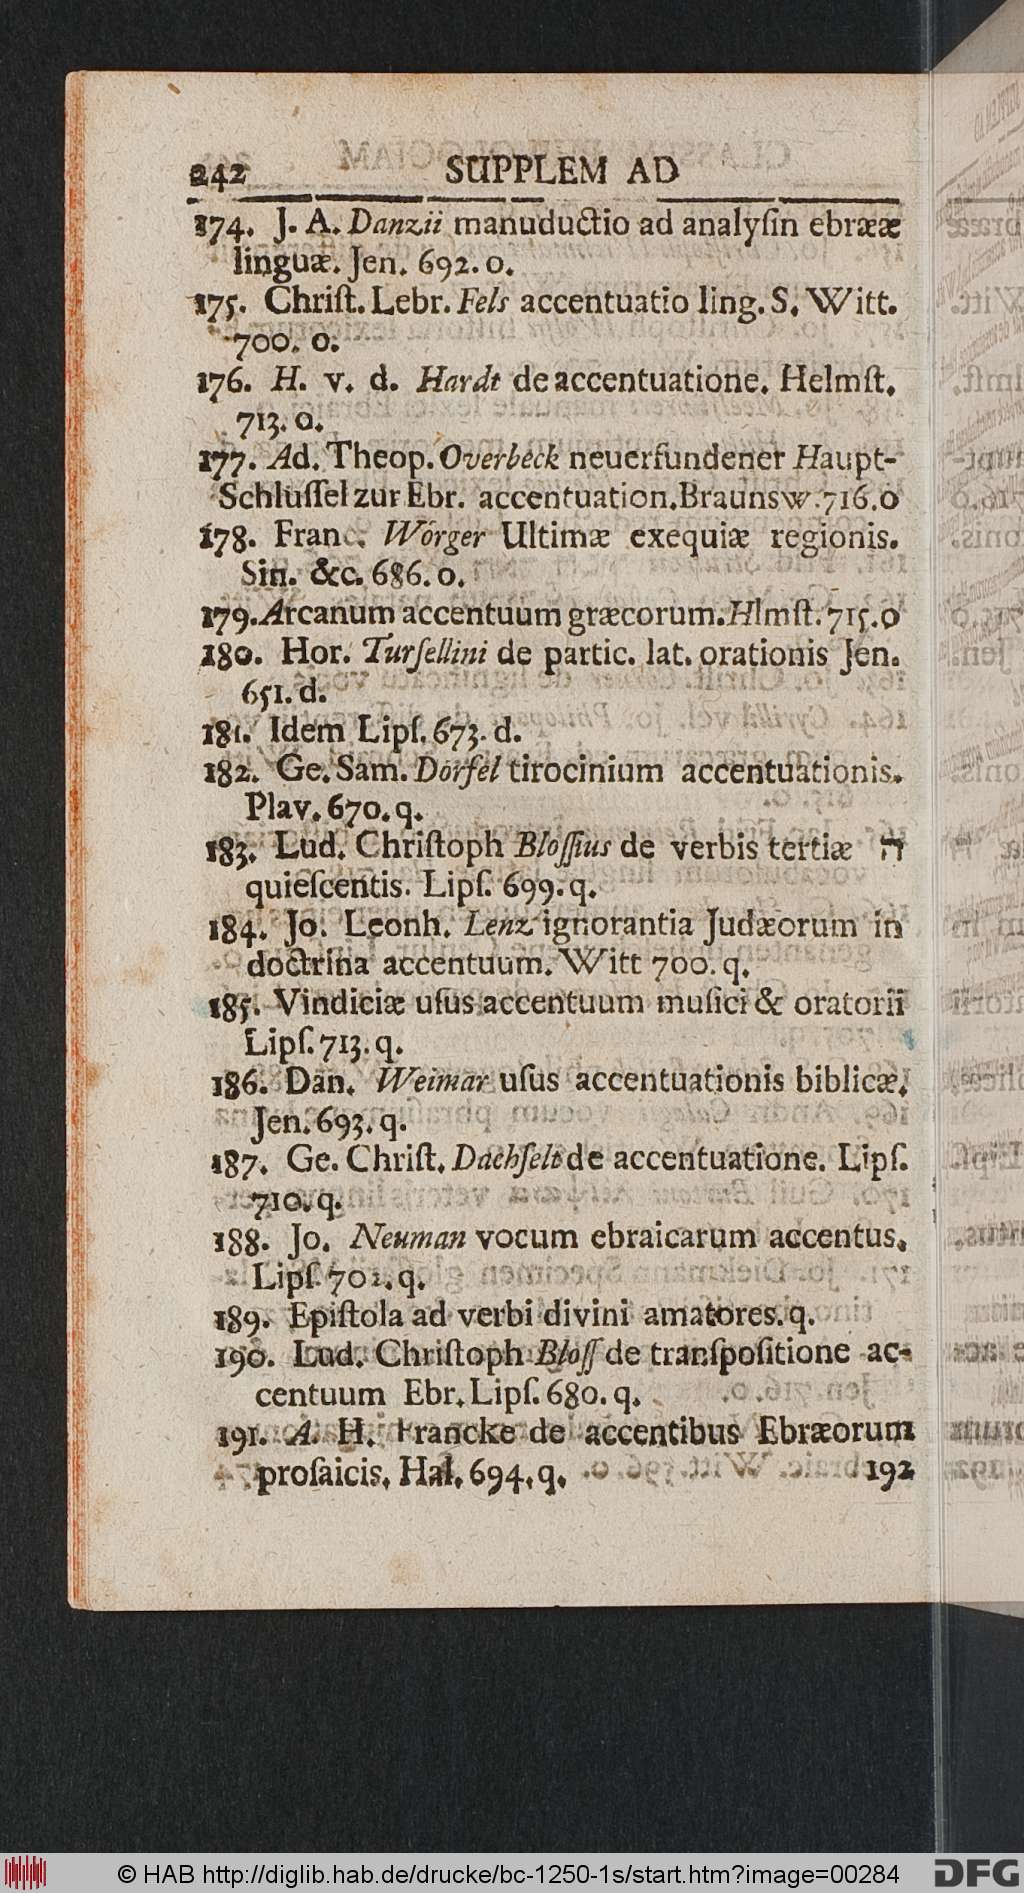 242 SUPPLEM AD
174. J. A. Danzii manuductio ad analyſin ebrææ
linguæ. Jen. 692. o.
175. Chriſt. Lebr. Fels accentuatio ling. S. Witt.
700. o.
176. H. v. d. Hardt de accentuatione. Helmſt.
713. o.
177. Ad. Theop. Overbeck neuerfundener Haupt-
Schluſſel zur Ebr. accentuation. Braunsw. 716. o
178. Franc. Wörger Ultimæ exequiæ regionis.
Sin. &c. 686. o.
179. Arcanum accentuum græcorum. Hlmſt. 715. o
180. Hor. Turſellini de partic. lat. orationis Jen.
651. d.
181. Idem Lipſ. 673. d.
182. Ge. Sam. Dörfel tirocinium accentuationis.
Plav. 670. q.
183. Lud. Chriſtoph Bloſſius de verbis tertiæ ה
quieſcentis. Lipſ. 699. q.
184. Jo. Leonh. Lenz ignorantia Judæorum in
doctrina accentuum. Witt 700. q.
185. Vindiciæ uſus accentuum muſici & oratorii
Lipſ. 713. q.
186. Dan. Weimar uſus accentuationis biblicæ.
Jen. 693. q.
187. Ge. Chriſt. Dachſelt de accentuatione. Lipſ.
710. q.
188. Jo. Neuman vocum ebraicarum accentus.
Lipſ. 702. q.
189. Epiſtola ad verbi divini amatores. q.
190. Lud. Chriſtoph Bloſſ de tranſpoſitione ac-
centuum Ebr. Lipſ. 680. q.
191. A. H. Francke de accentibus Ebræorum
proſaicis. Hal. 694. q. 192
© HAB http://diglib.hab.de/drucke/bc-1250-1s/start.htm?image=00284 DFG